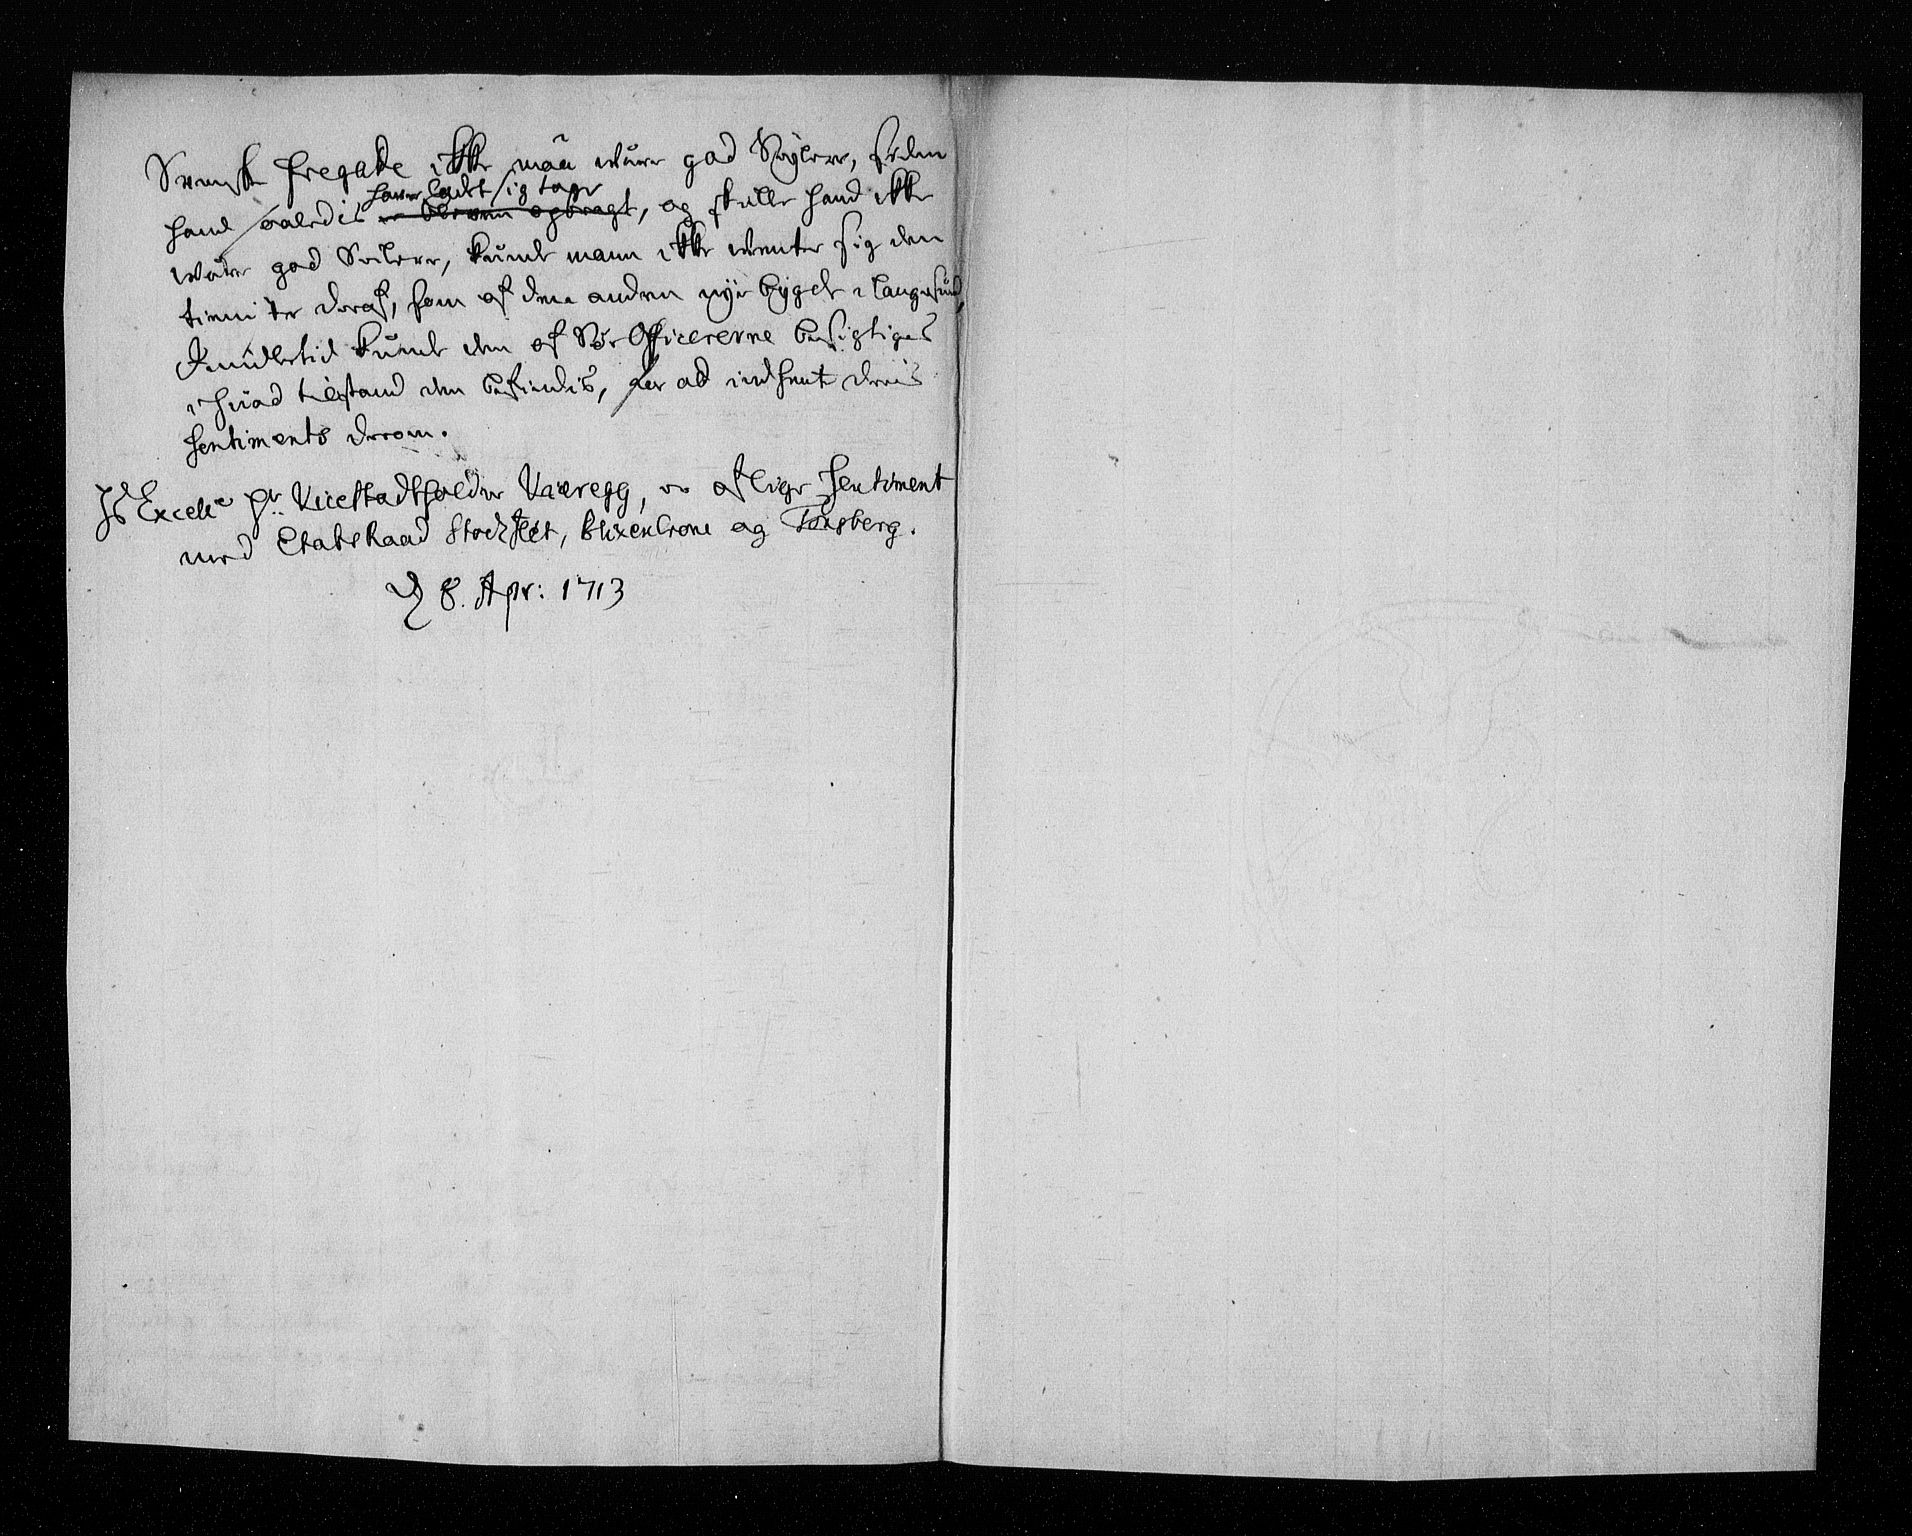 Svensk Fregatte ikke maa være god Seylere, siden
hand saaledis haver ladet sig tage er bleven opbragt, og skulle hand ikke
være god Seilere, kunde mann icke vente sig den
tienniste deraf, som af den anden nye bygde i Langesund,
Imidlertid kunde den af Søe Officererne besigtiges
i hvad tilstand den befindis, for at indhente deris
sentiments derom.
Hs Excell: Hr: Vicestadtholder Vaeregg, er af lige sentiment
med Etats Raad Stockflet, Blixencrone og Tønsberg.
D 8. Apr: 1713